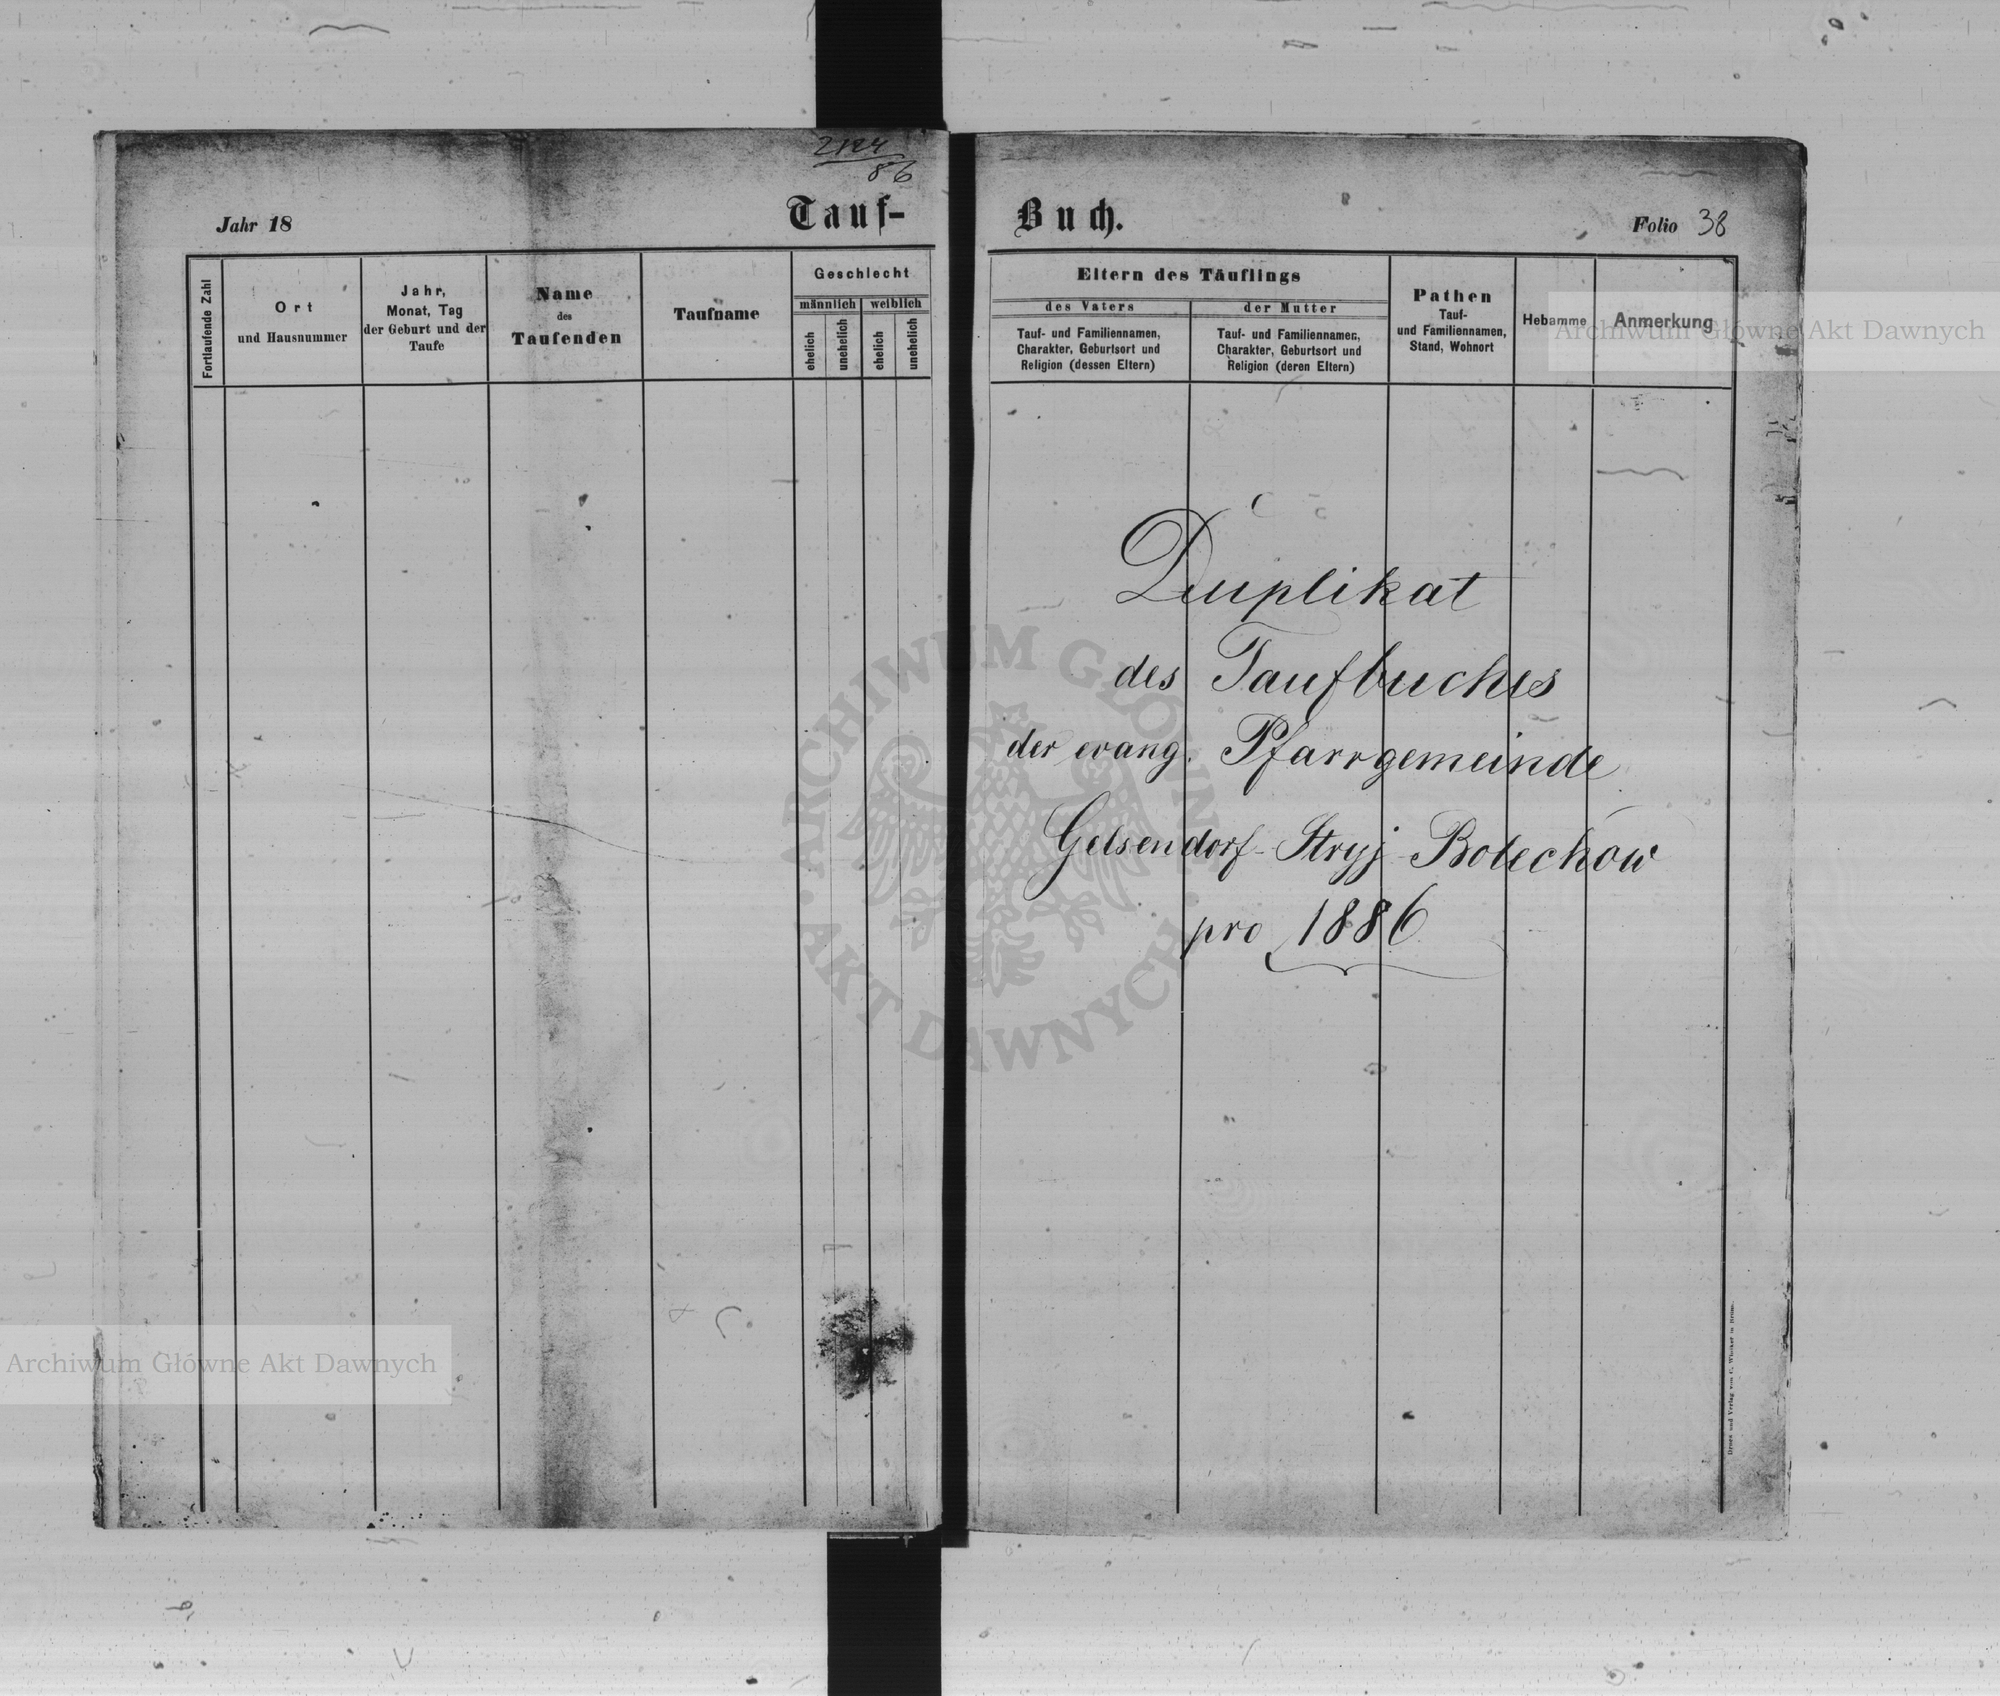 2124
86
Jahr 18
Tauf-
Buch.
Folio 38
Fortlaufende Zahl
Ort
und Hausnummer
Jahr,
Monat, Tag
der Geburt und der
Taufe
Name
des
Taufenden
Taufname
Geschlecht
männlich
weiblich
ehelich
unehelich
ehelich
unehelich
Eltern des Täuflings
des Vaters
Tauf- und Familiennamen,
Charakter, Geburtsort und
Religion (dessen Eltern)
der Mutter
Tauf- und Familiennamen,
Charakter, Geburtsort und
Religion (deren Eltern)
Pathen
Tauf-
und Familiennamen,
Stand, Wohnort
Hebamme
Anmerkung
Archiwum Główne Akt Dawnych
Duplikat
des Taufbuches
der evang. Pfarrgemeinde
Gelsendorf-Stryj-Bolechow
pro 1886
ARCHIWUM GŁÓWNE
AKT DAWNYCH
Archiwum Główne Akt Dawnych
Druck und Verlag von C. Winiker in Brünn.